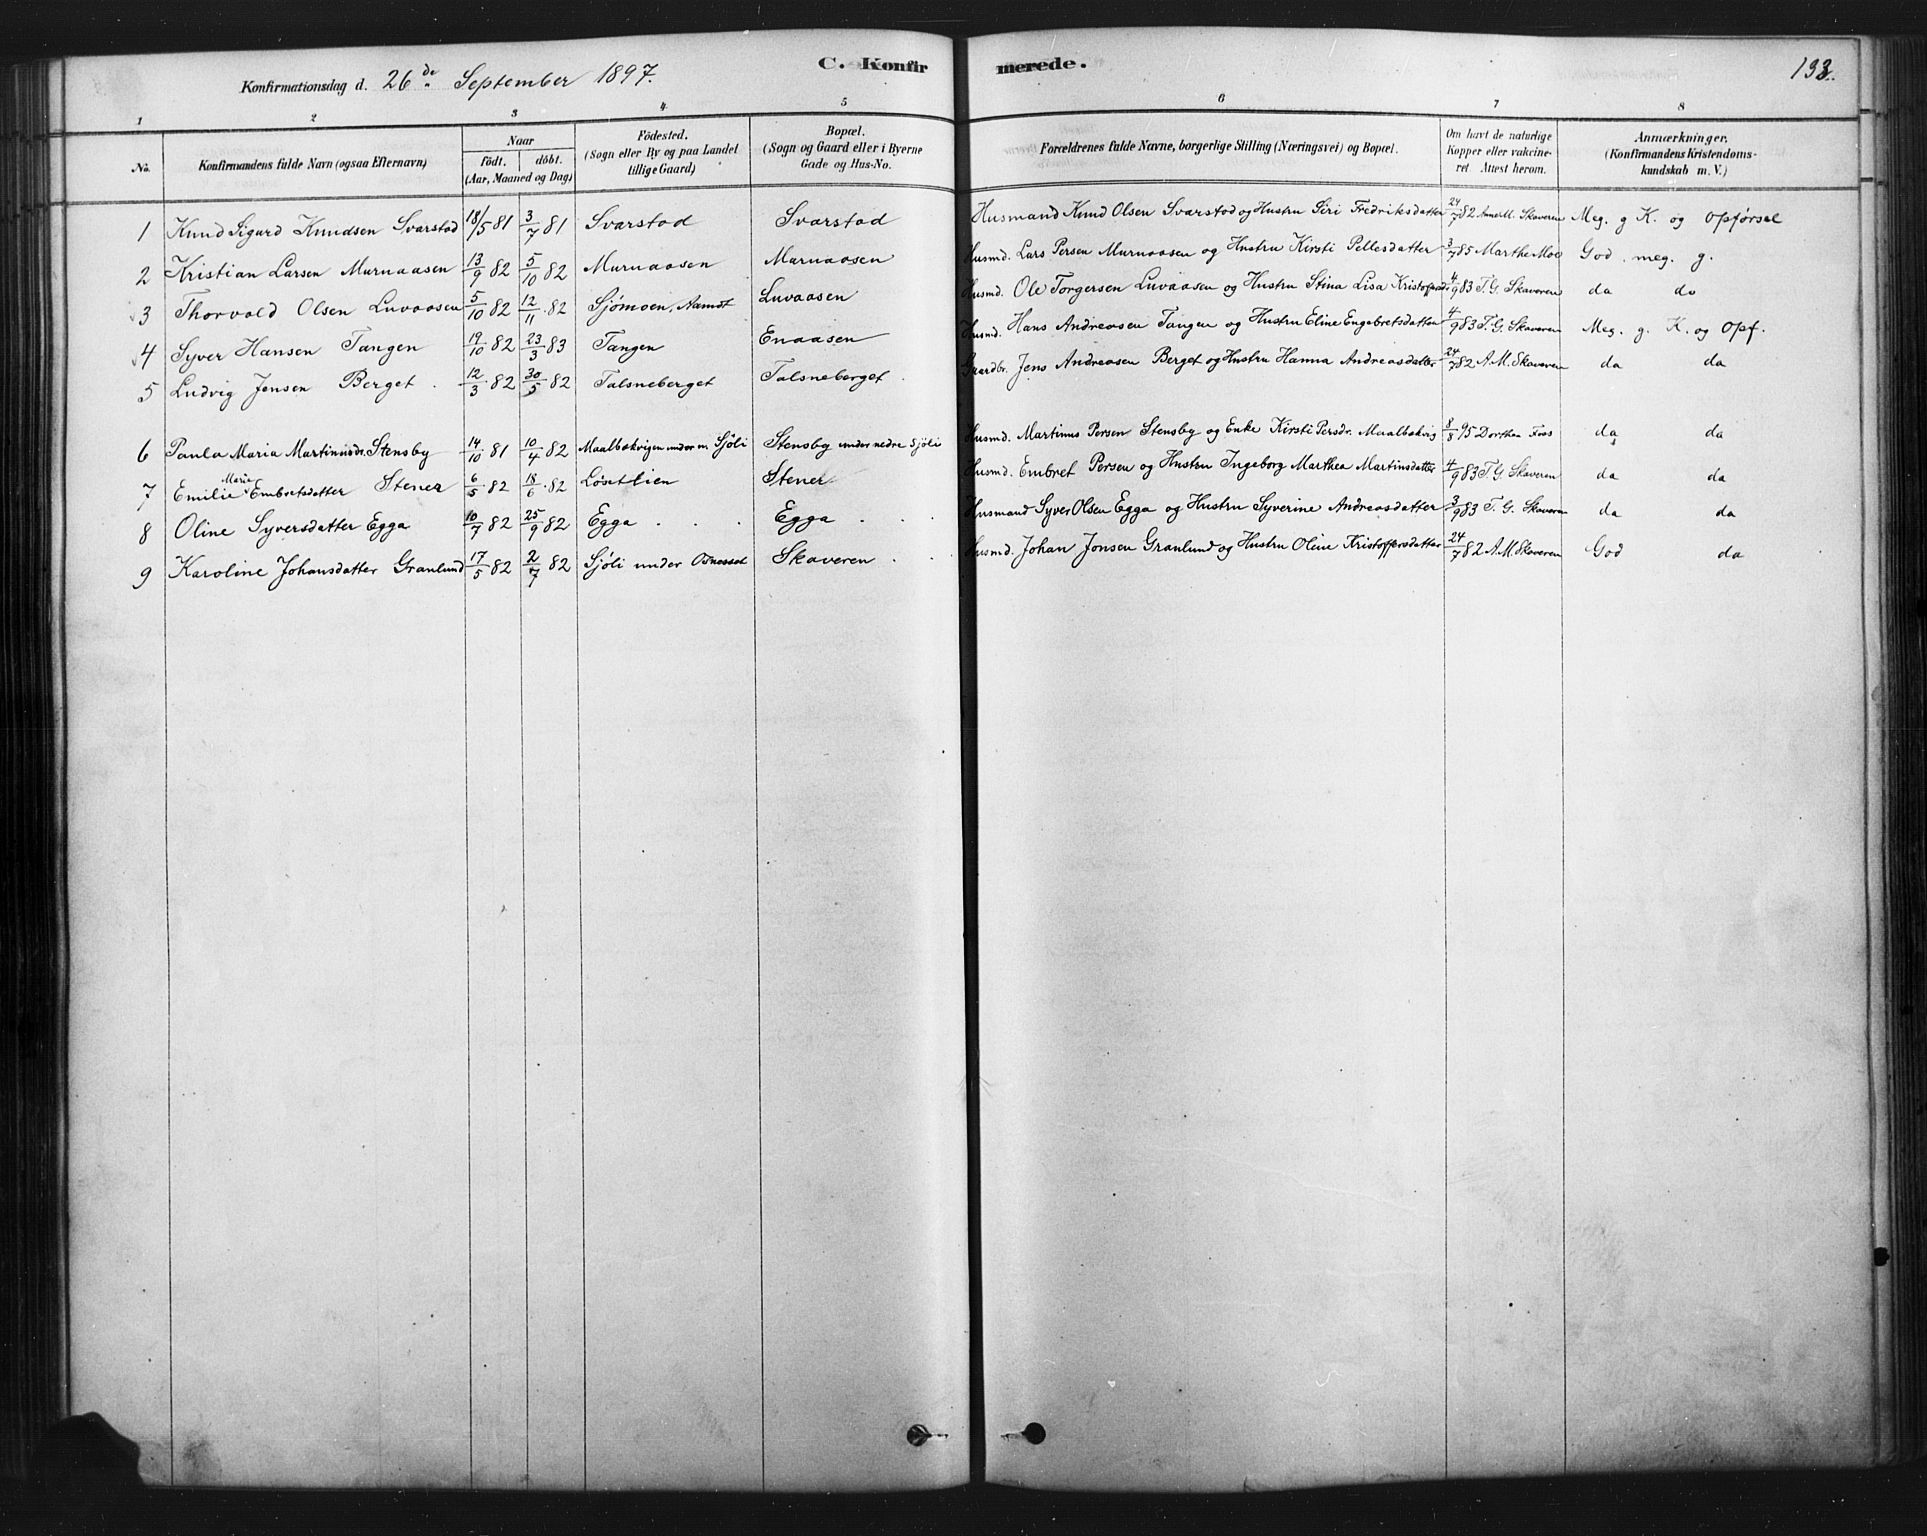 C. Konfirmerede.
193.
Konfirmationsdag d. 26de September 1897.
1 2 3 4 5 6 7 8
No. Konfirmandens fulde Navn (ogsaa Efternavn) Naar Födt. döbt. (Aar, Maaned og Dag) Födested. (Sogn eller By og paa Landet tillige Gaard) Bopæl. (Sogn og Gaard eller i Byerne Gade og Hus-No. Forældrenes fulde Navne, borgerlige Stilling (Næringsvei) og Bopæl. Om havt de naturlige Kopper eller vakcineret Attest herom. Anmærkninger, (Konfirmandens Kristendomskundskab m. V.)
1 Knud Sigard Knudsen Svarstad 18/5 81 3/7 81 Svarstad Svarstad Husmand Knud Olsen Svarstad og Hustru Siri Fredriksdatter 24/7 82 Anne M. Skaveren Meg. g K. og Opførsel
2 Kristian Larsen Murnaasen 13/9 82 5/10 82 Murnaasen Murnaasen Husmd. Lars Persen Murnaasen og Hustru Kirsti Pellesdatter 3/7 85 Marthe Moe God. meg. g.
3 Thorvald Olsen Luvaasen 5/10 82 12/11 82 Sjömoen, Aamot Luvaasen Husmd. Ole Torgersen Luvaasen og Hustru Stina Lisa 4/9 83 T. G. Skaveren da do
4 Syver Hansen Tangen 19/10 82 23/3 83 Tangen Enaasen Husmd. Hans Andreasen Tangen og Hustru Eline Engebretsdatter 4/9 83 T. G. Skaveren Meg. g. K. og Opf.
5 Ludvig Jensen Berget. 12/3 82 30/5 82 Talsneberget Talsneberget. Gaardbr. Jens Andreasen Berget og Hustru Hanna Andreasdatter 24/7 82 A. M. Skaveren da da
6 Paula Maria Martinusdr. Stensby 14/10 81 10/4 82 Maalbækvigen under n. Sjöli Stensby under nedre Sjöli Husmd. Martinus Persen Stensby og Enke Kirsti Persdr. Maalbækvig 8/8 95 Dorthea Foss da da
7 Emilie Marie Embretsdatter Stener 6/5 82 18/6 82 Løsetlien Stener Husmd. Embret Persen og Hustru Ingeborg Marthea Martinsdatter 4/9 83 T. G. Skaveren da da
8 Oline Syversdatter Egga 10/7 82 25/9 82 Egga Egga Husmand Syver Olsen Egga og Hustru Syverine Andreasdatter 3/9 83 T. G. Skaveren da da
9 Karoline Johansdatter Granlund 17/5 82 2/7 82 Sjöli under Skaveren Husmd. Johan Jonsen Granlund og Hustru Oline Kristoffersdatter 24/7 82 A. M. Skaveren God da